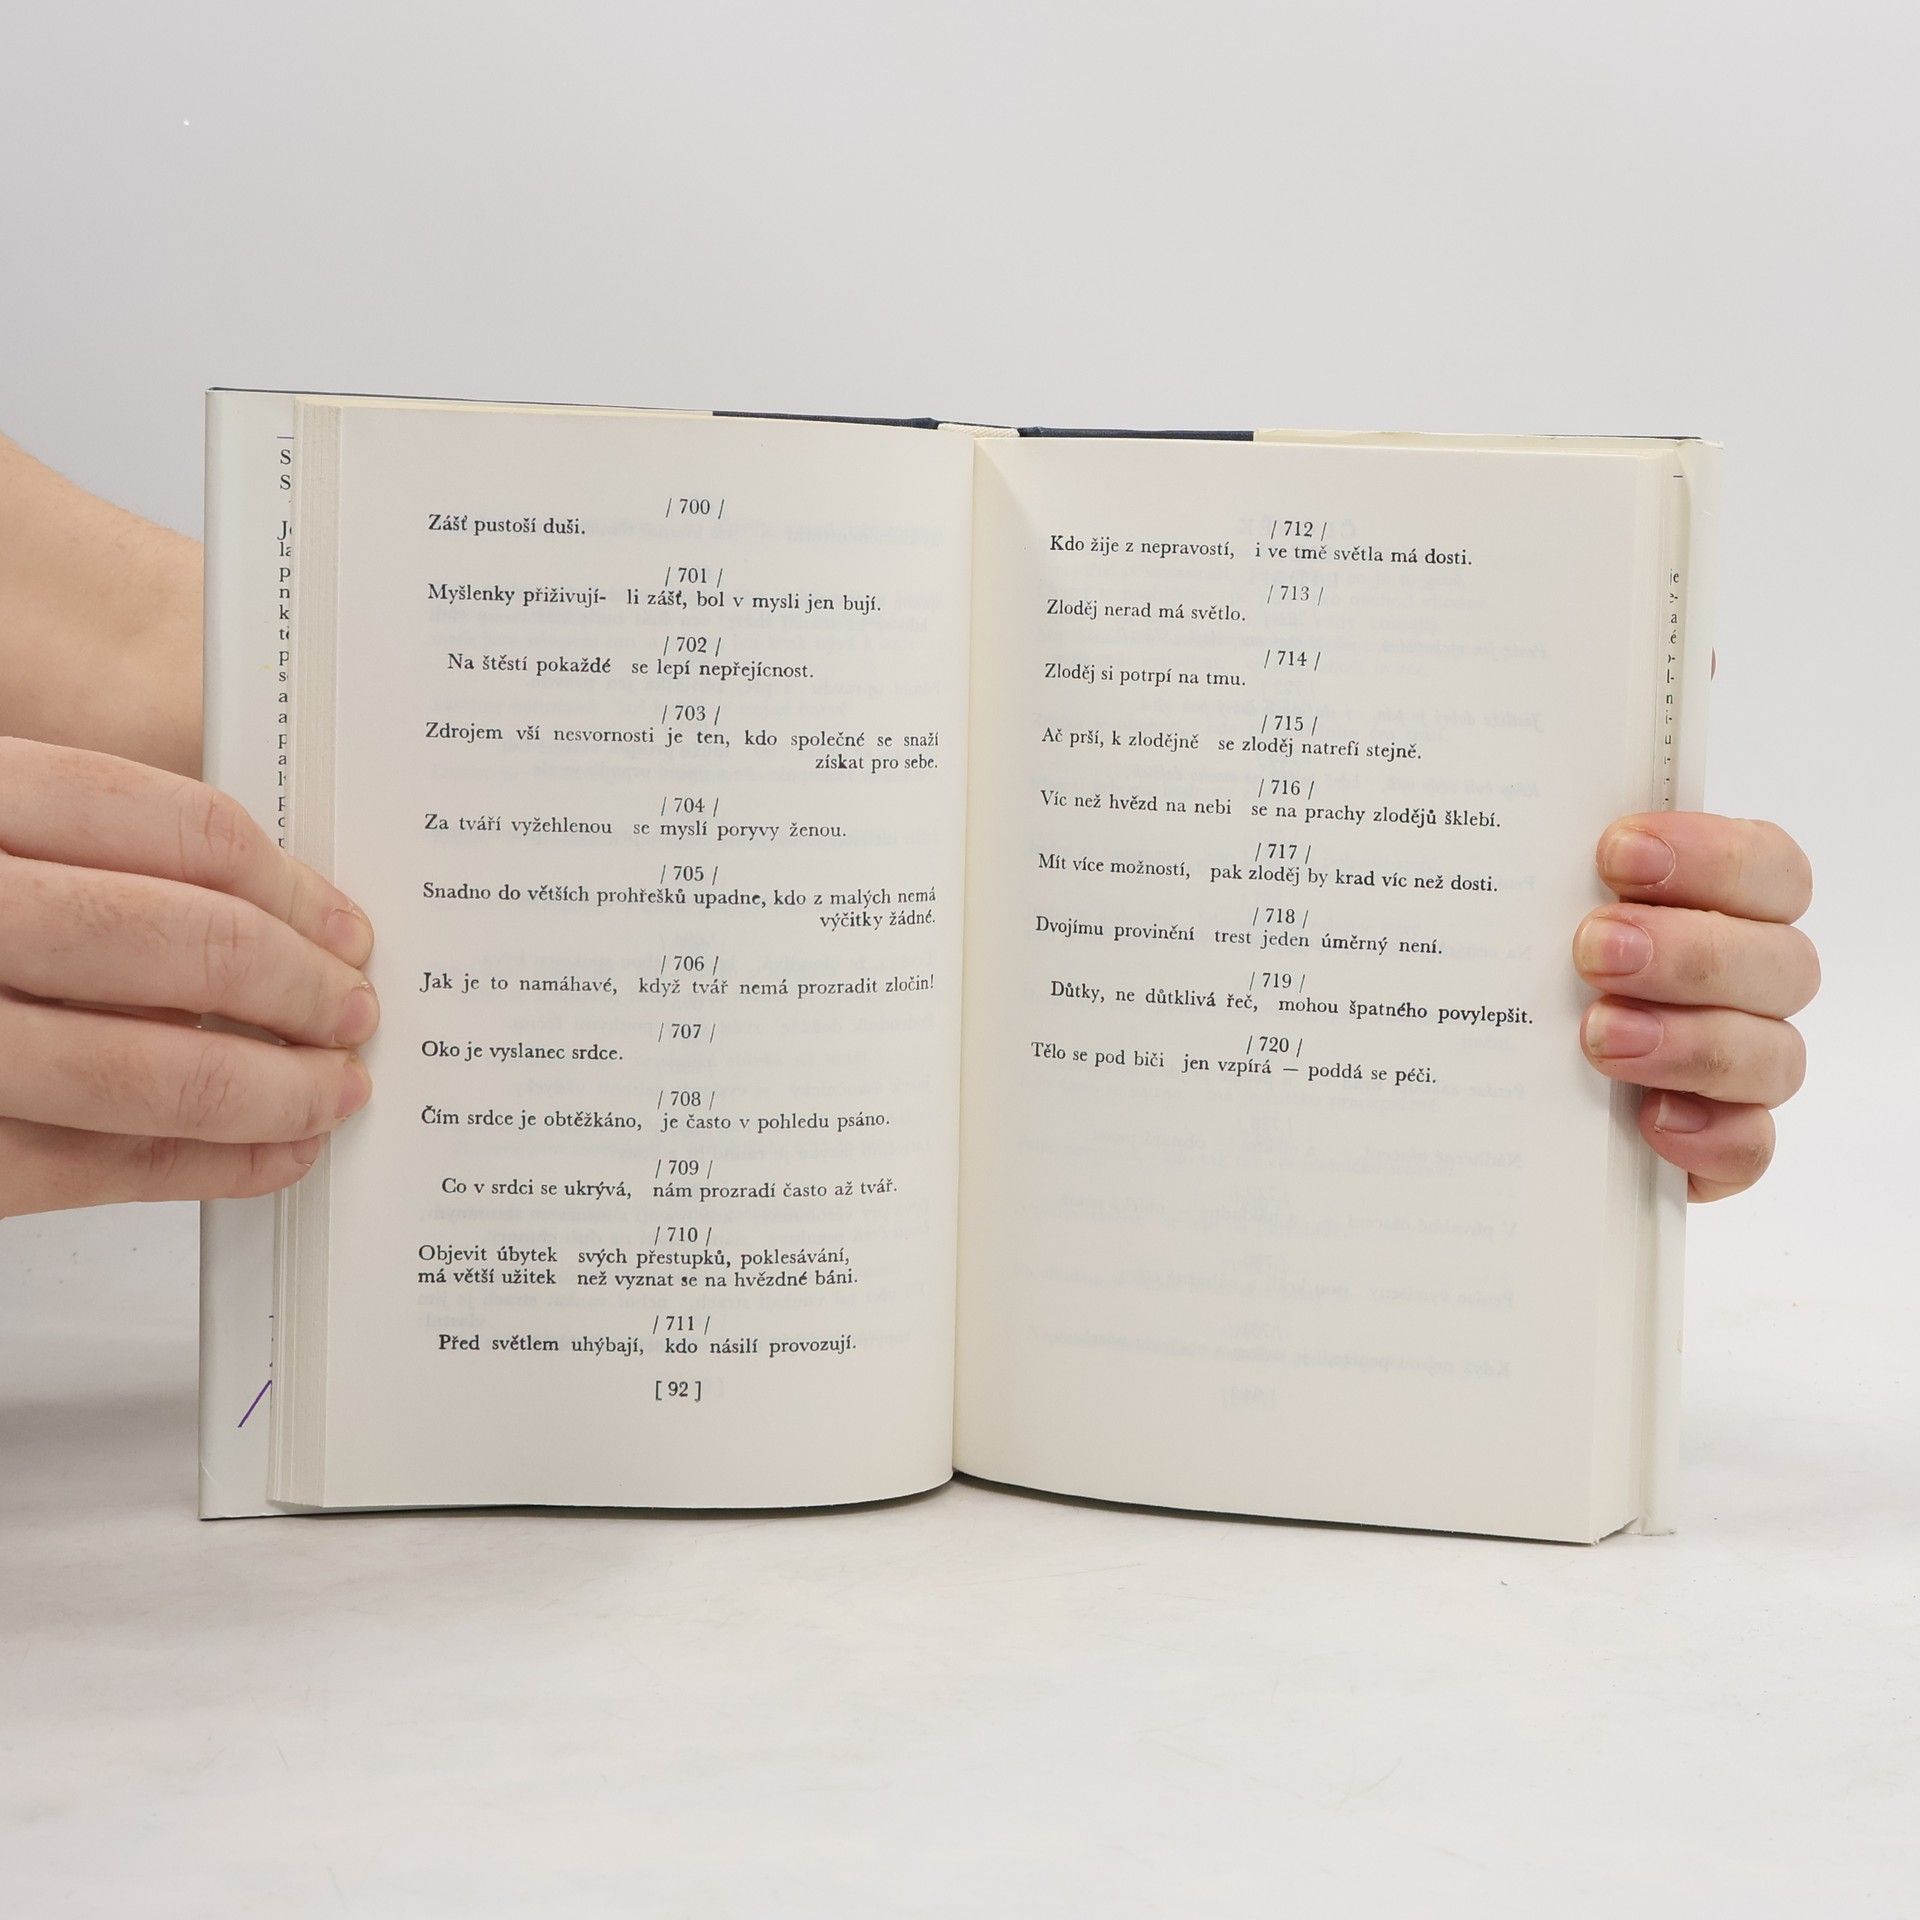 / 700 /
Zášť pustoší duši.
/ 701 /
Myšlenky přiživují- li zášť, bol v mysli jen bují.
/ 702 /
Na štěstí pokaždé se lepí nepřejícnost.
/ 703 /
Zdrojem vší nesvornosti je ten, kdo společné se snaží
získat pro sebe.
/ 704 /
Za tváří vyžehlenou se myslí poryvy ženou.
/ 705 /
Snadno do větších prohřešků upadne, kdo z malých nemá
výčitky žádné.
/ 706 /
Jak je to namáhavé, když tvář nemá prozradit zločin!
/ 707 /
Oko je vyslanec srdce.
/ 708 /
Čím srdce je obtěžkáno, je často v pohledu psáno.
/ 709 /
Co v srdci se ukrývá, nám prozradí často až tvář.
/ 710 /
Objevit úbytek svých přestupků, poklesávání,
má větší užitek než vyznat se na hvězdné báni.
/ 711 /
Před světlem uhýbají, kdo násilí provozují.
[ 92 ]
/ 712 /
Kdo žije z nepravostí, i ve tmě světla má dosti.
/ 713 /
Zloděj nerad má světlo.
/ 714 /
Zloděj si potrpí na tmu.
/ 715 /
Ač prší, k zlodějně se zloděj natrefí stejně.
/ 716 /
Víc než hvězd na nebi se na prachy zlodějů šklebí.
/ 717 /
Mít více možností, pak zloděj by krad víc než dosti.
/ 718 /
Dvojímu provinění trest jeden úměrný není.
/ 719 /
Důtky, ne důtklivá řeč, mohou špatného povylepšit.
/ 720 /
Tělo se pod biči jen vzpírá — poddá se péči.